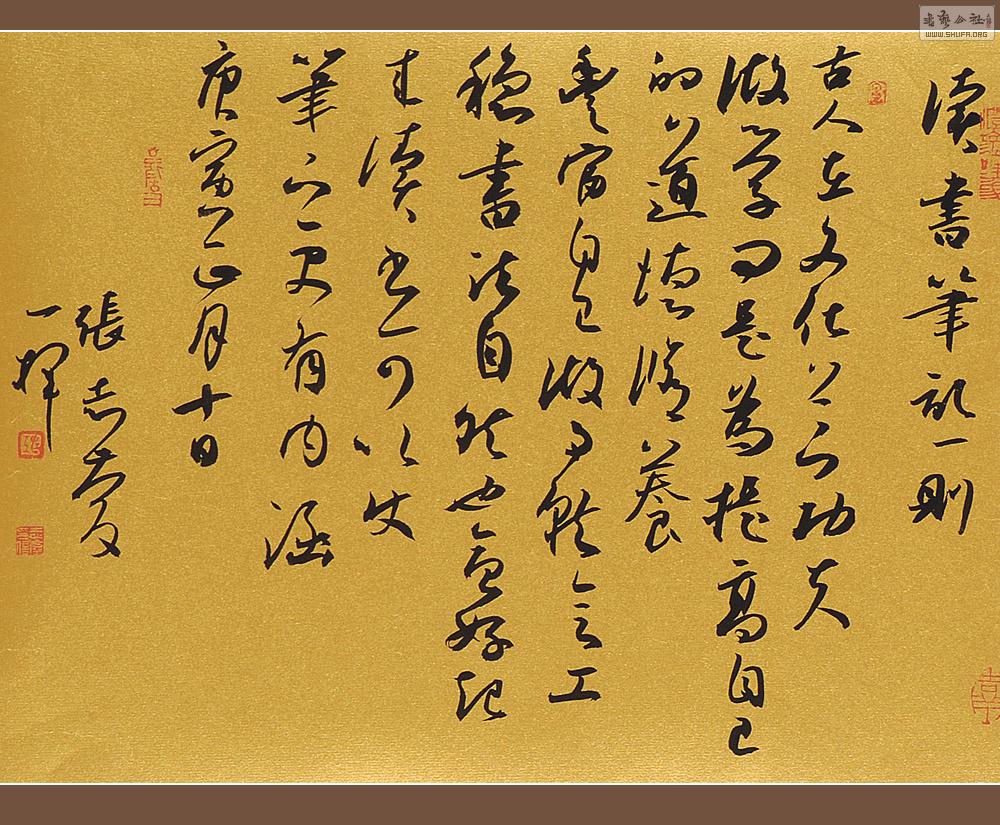 讀書筆記一則
古人在文化上下功夫
做學問是為提高自己
的道德修養
豐富自己做事就會工
穩書法自然也會好起
來讀書可以使
筆下更有內涵
庚寅正月十日
張志慶
一揮
书艺公社
WWW.SHUFA.ORG